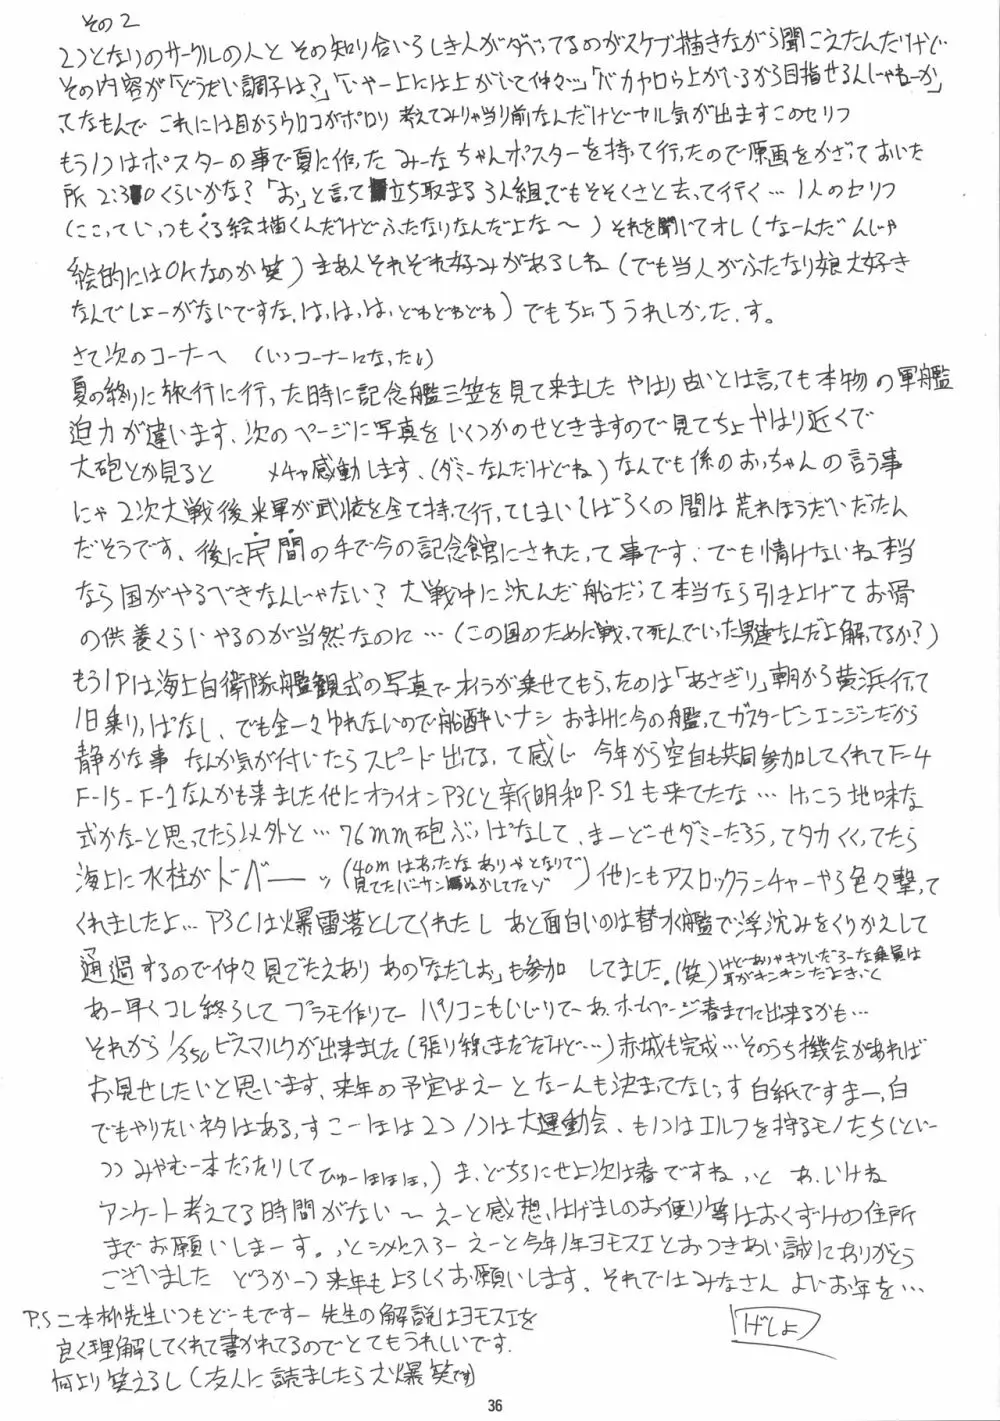 その2
2つとなりのサークルの人と その知り合いらしき人がダベってるのがスケブ描きながら聞こえたんだけど
その内容が「どうだい調子は?」「いやー上には上がいて仲々…」「バカヤロウ上がいるから目指せるんじゃねーか」
てなもんで これには目からウロコがポロリ 考えてみりゃ当り前なんだけどヤル気が出ますこのセリフ
もう1つはポスターの事で夏に作った みーなちゃんポスターを持って行ったので原画をかざっておいた
所 2:30くらいかな?「お」と言って立ち止まる3人組でもそそくさと去って行く… 1人のセリフ
(ここっていつもくる絵描くんだけどふたなりなんだよな〜) それを聞いてオレ (なーんだんじゃ
絵的にはOKなのか笑) まあ人それぞれ好みがあるしね (でも当人がふたなり娘大好き
なんでしょーがないですな、は、は、は、どわどわどわ) でもちょっちうれしかったっす。
さて次のコーナーへ (いつコーナーになったい)
夏の終りに旅行に行った時に記念艦三笠を見て来ました やはり古いとは言っても本物の軍艦
迫力が違います、次のページに写真をいくつかのせときますので見てちょ やはり近くで
大砲とか見ると メチャ感動します、(ダミーなんだけどね) なんでも係のおっちゃんの言う事
にゃ2次大戦後米軍が武装を全て持って行ってしまいしばらくの間は荒れほうだいだったん
だそうです、後に民間の手で今の記念館にされたって事です、でも情けないね本当
なら国がやるべきなんじゃない? 大戦中に沈んだ船だって本当なら引き上げてお骨
の供養くらいやるのが当然なのに… (この国のために戦って死んでいった男達なんだよ解ってるか?)
もう1Pは海上自衛隊観艦式の写真でオイラが乗せてもらったのは「あさぎり」朝から横浜行って
1日乗りっぱなし、でも全々ゆれないので船酔いナシ おまけに今の艦ってガスタービンエンジンだから
静かな事 なんか気が付いたらスピード出てるって感じ 今年から空自も共同参加してくれてF-4
F-15-F-1なんかも来ました他にオライオンP3Cと新明和P-S1も来てたな… けっこう地味な
式かなーと思ってたら以外と… 76mm砲ぶっぱなして、まーどーせダミーだろうってタカくくってたら
海上に水柱がドバーーッ(40mはあったなありゃとなりで
見てたバーサンぬかしてたゾ) 他にもアスロックランチャーやら色々撃って
くれましたよ… P3Cは爆雷落としてくれたし あと面白いのは潜水艦で浮沈みをくりかえして
通過するので仲々見ごたえあり あの「なだしお」も参加 してました。(笑)
あー早くコレ終らして プラモ作りてー パソコンもいじりてー あ、ホームページ春までに出来るかも…
それから1/350ビスマルクが出来ました (張り線まだだけど…) 赤城も完成… そのうち機会があれば
お見せしたいと思います、来年の予定はえーと なーんも決まってないっす 白紙ですまっ白
でもやりたいネタはあるっす こーほは2つ 1つは大運動会、も1つはエルフを狩るモノたち (といー
つつみやむー本だったりして ひゅーほほほ、) ま、どちらにせよ次は春ですね、っと あ、いけね
アンケート考えてる時間がない〜 えーと感想、はげましのお便り等はおくずけの住所
までお願いしまーす。っとシメに入ろー えーと今年1年ヨモスエとおつきあい誠にありがとう
ございました どうか一つ来年もよろしくお願いします、それではみなさん よいお年を…
げしょ
P.S 二本柳先生いつもどーもですー 先生の解説はヨモスエを
良く理解してくれて書かれてるのでとてもうれしいです。
何より笑えるし (友人に読ましたら大爆笑です)
36